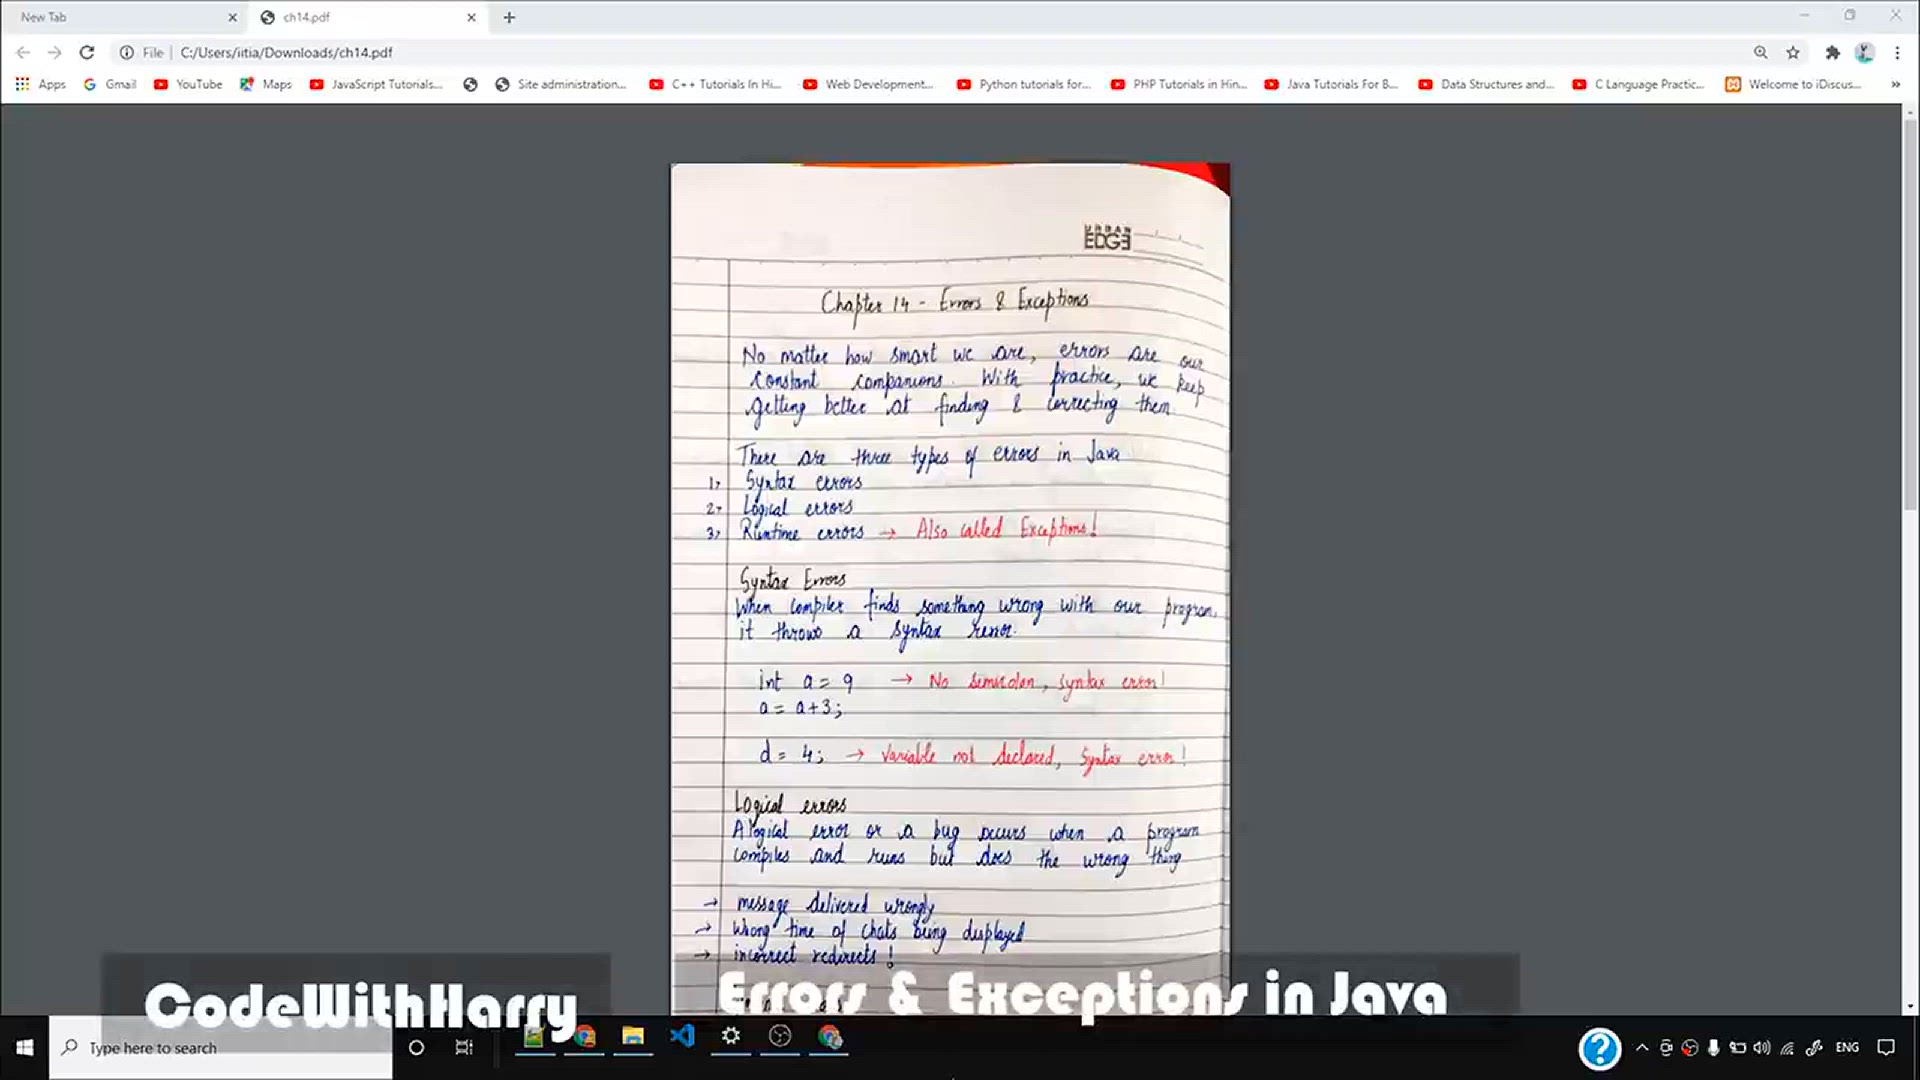 New Tab
ch14.pdf
File | C:/Users/iitia/Downloads/ch14.pdf
Apps Gmail YouTube Maps JavaScript Tutorials... Site administration... C++ Tutorials In Hi... Web Development... Python tutorials for... PHP Tutorials in Hin... Java Tutorials For B... Data Structures and... C Language Practic... Welcome to iDiscus... »
URBAN
EDGE
Chapter 14 - Errors & Exceptions
No matter how smart we are, errors are our
constant companions. With practice, we keep
getting better at finding & correcting them.
There are three types of errors in Java
1, Syntax errors
2, Logical errors
3, Runtime errors → Also called Exceptions!
Syntax Errors
When compiler finds something wrong with our program,
it throws a syntax
int a = 9 → No semicolon, syntax error!
a = a+3;
d = 4; → Variable not declared, syntax error!
Logical errors
A logical error or a bug occurs when a program
compiles and runs but does the wrong thing
→ message delivered wrongly
→ Wrong time of chats being displayed
→ incorrect redirects!
CodeWithHarry
Errors & Exceptions in Java
Type here to search
ENG